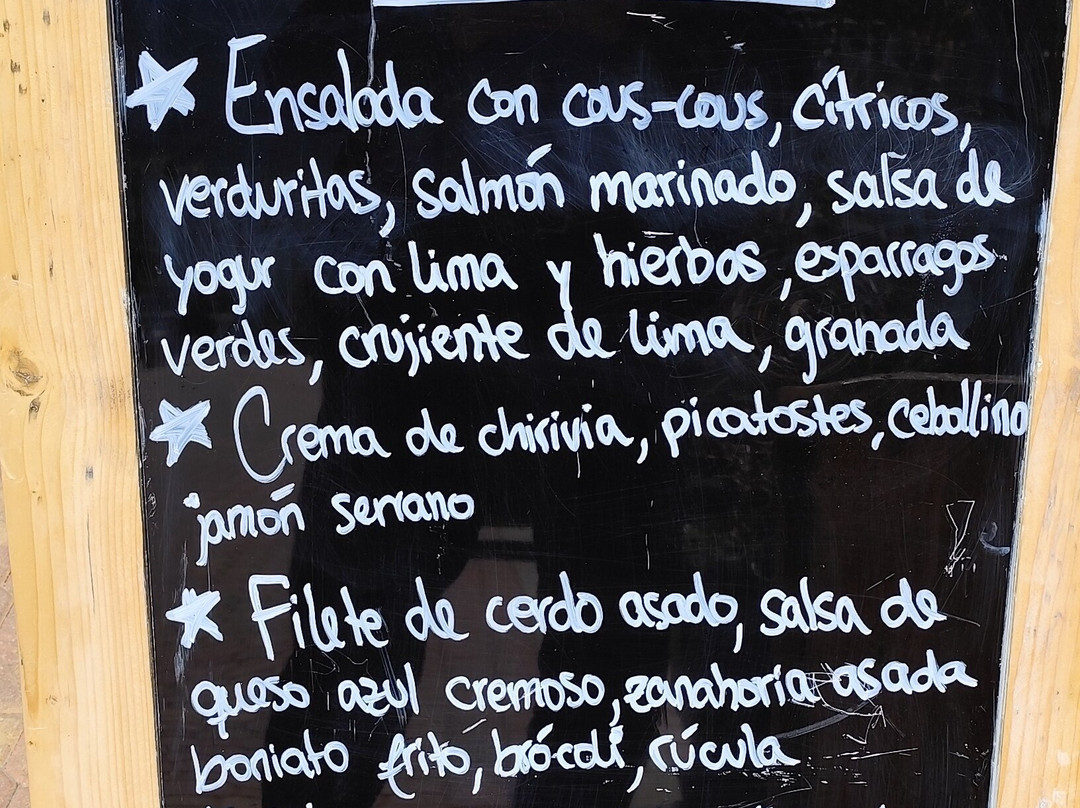 ★ Ensalada con cous-cous, cítricos,
verduritas, salmón marinado, salsa de
yogur con lima y hierbas, esparragos
verdes, crujiente de lima, granada
★ Crema de chirivia, picatostes, cebollino
jamón serrano
★ Filete de cerdo asado, salsa de
queso azul cremoso, zanahoria asada
boniato frito, brócoli, rúcula